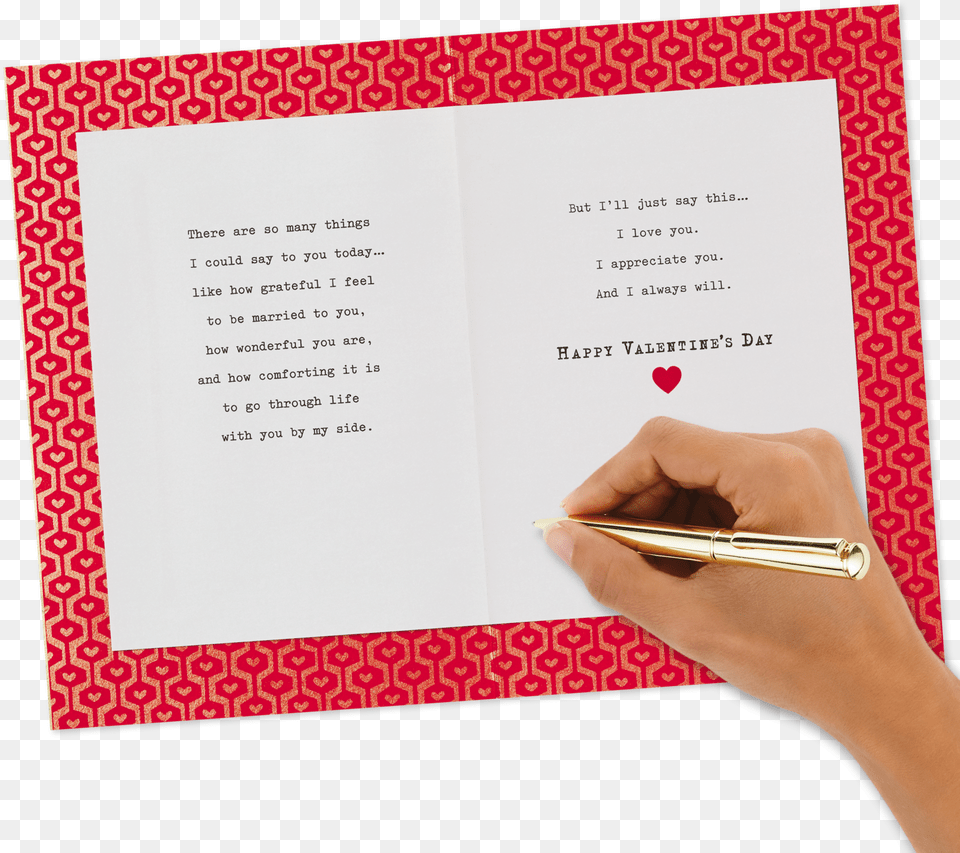 There are so many things
I could say to you today...
like how grateful I feel
to be married to you,
how wonderful you are,
and how comforting it is
to go through life
with you by my side.
But I'll just say this...
I love you.
I appreciate you.
And I always will.
HAPPY VALENTINE'S DAY